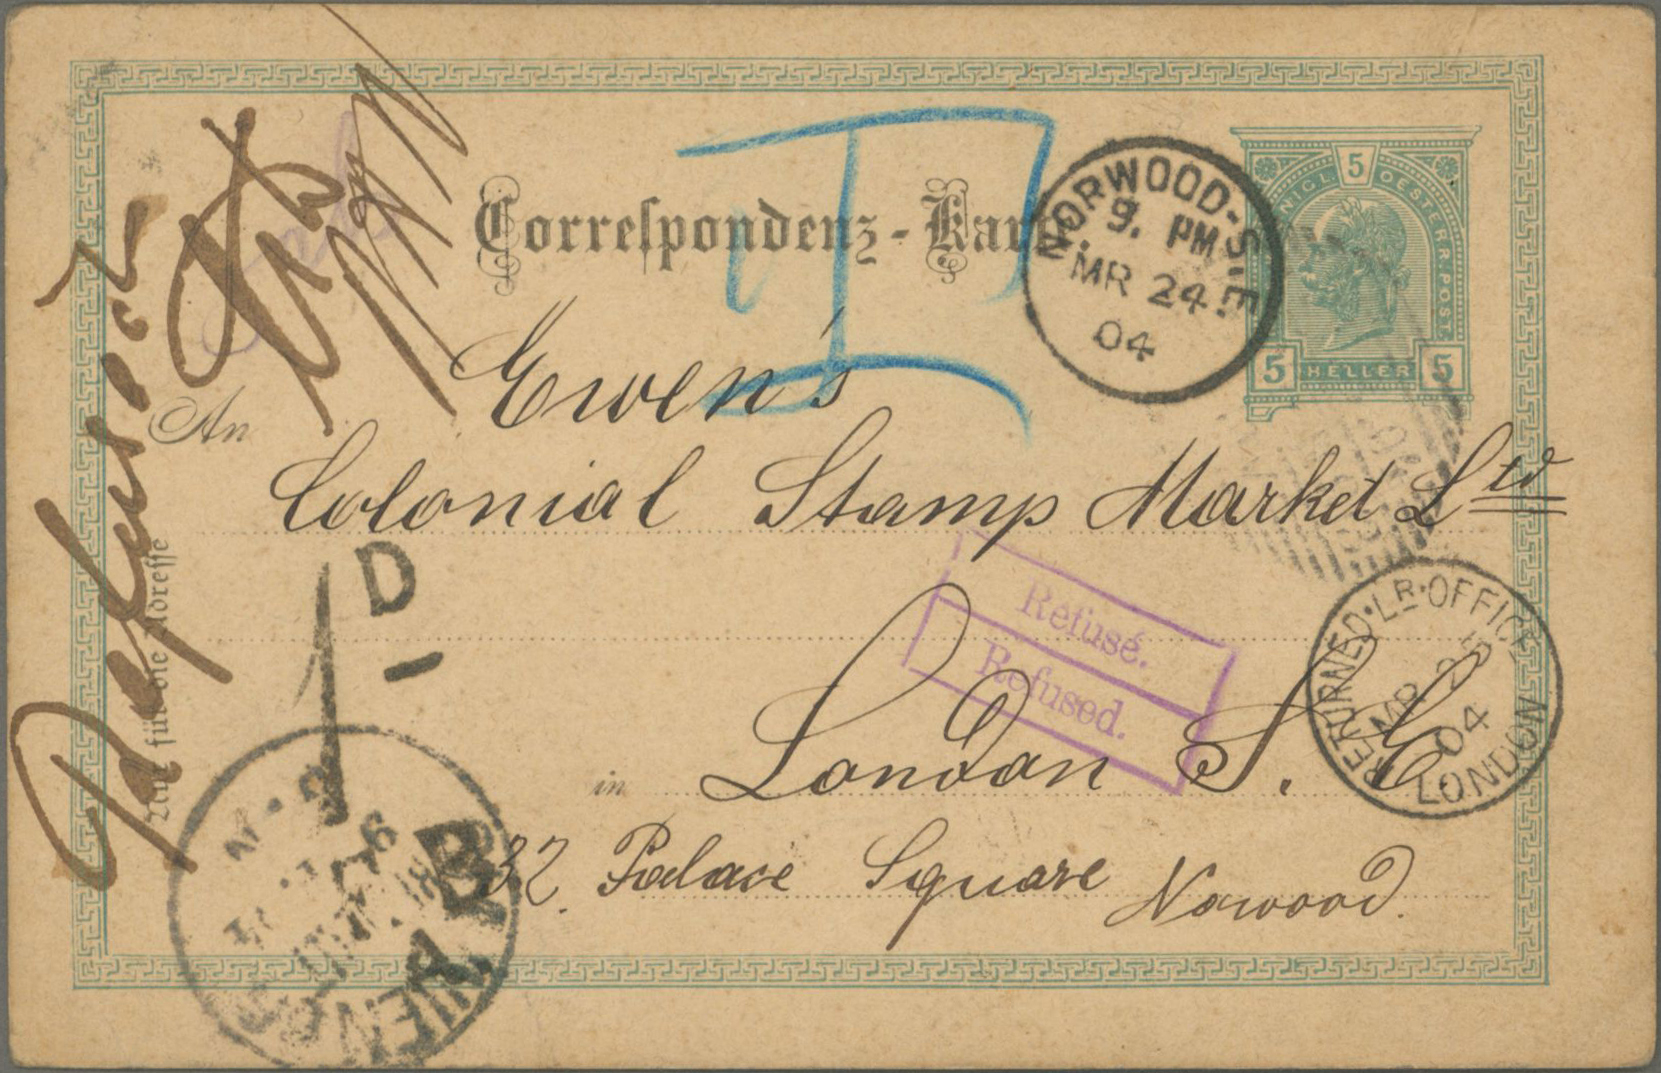 Correspondenz-Karte.
5
KÖNIGL. OESTERR. POST.
5 HELLER 5
NORWOOD-S.E.
9. PM
MR 24
04
T
Refused
An
Ewen's
Colonial Stamp Market Ltd
1 D
Refusé.
Refused.
RETURNED Lr. OFFICE
MR 25
04
LONDON
in London S. E
32. Palace Square Norwood.
Nur für die Adresse
B
WIEN